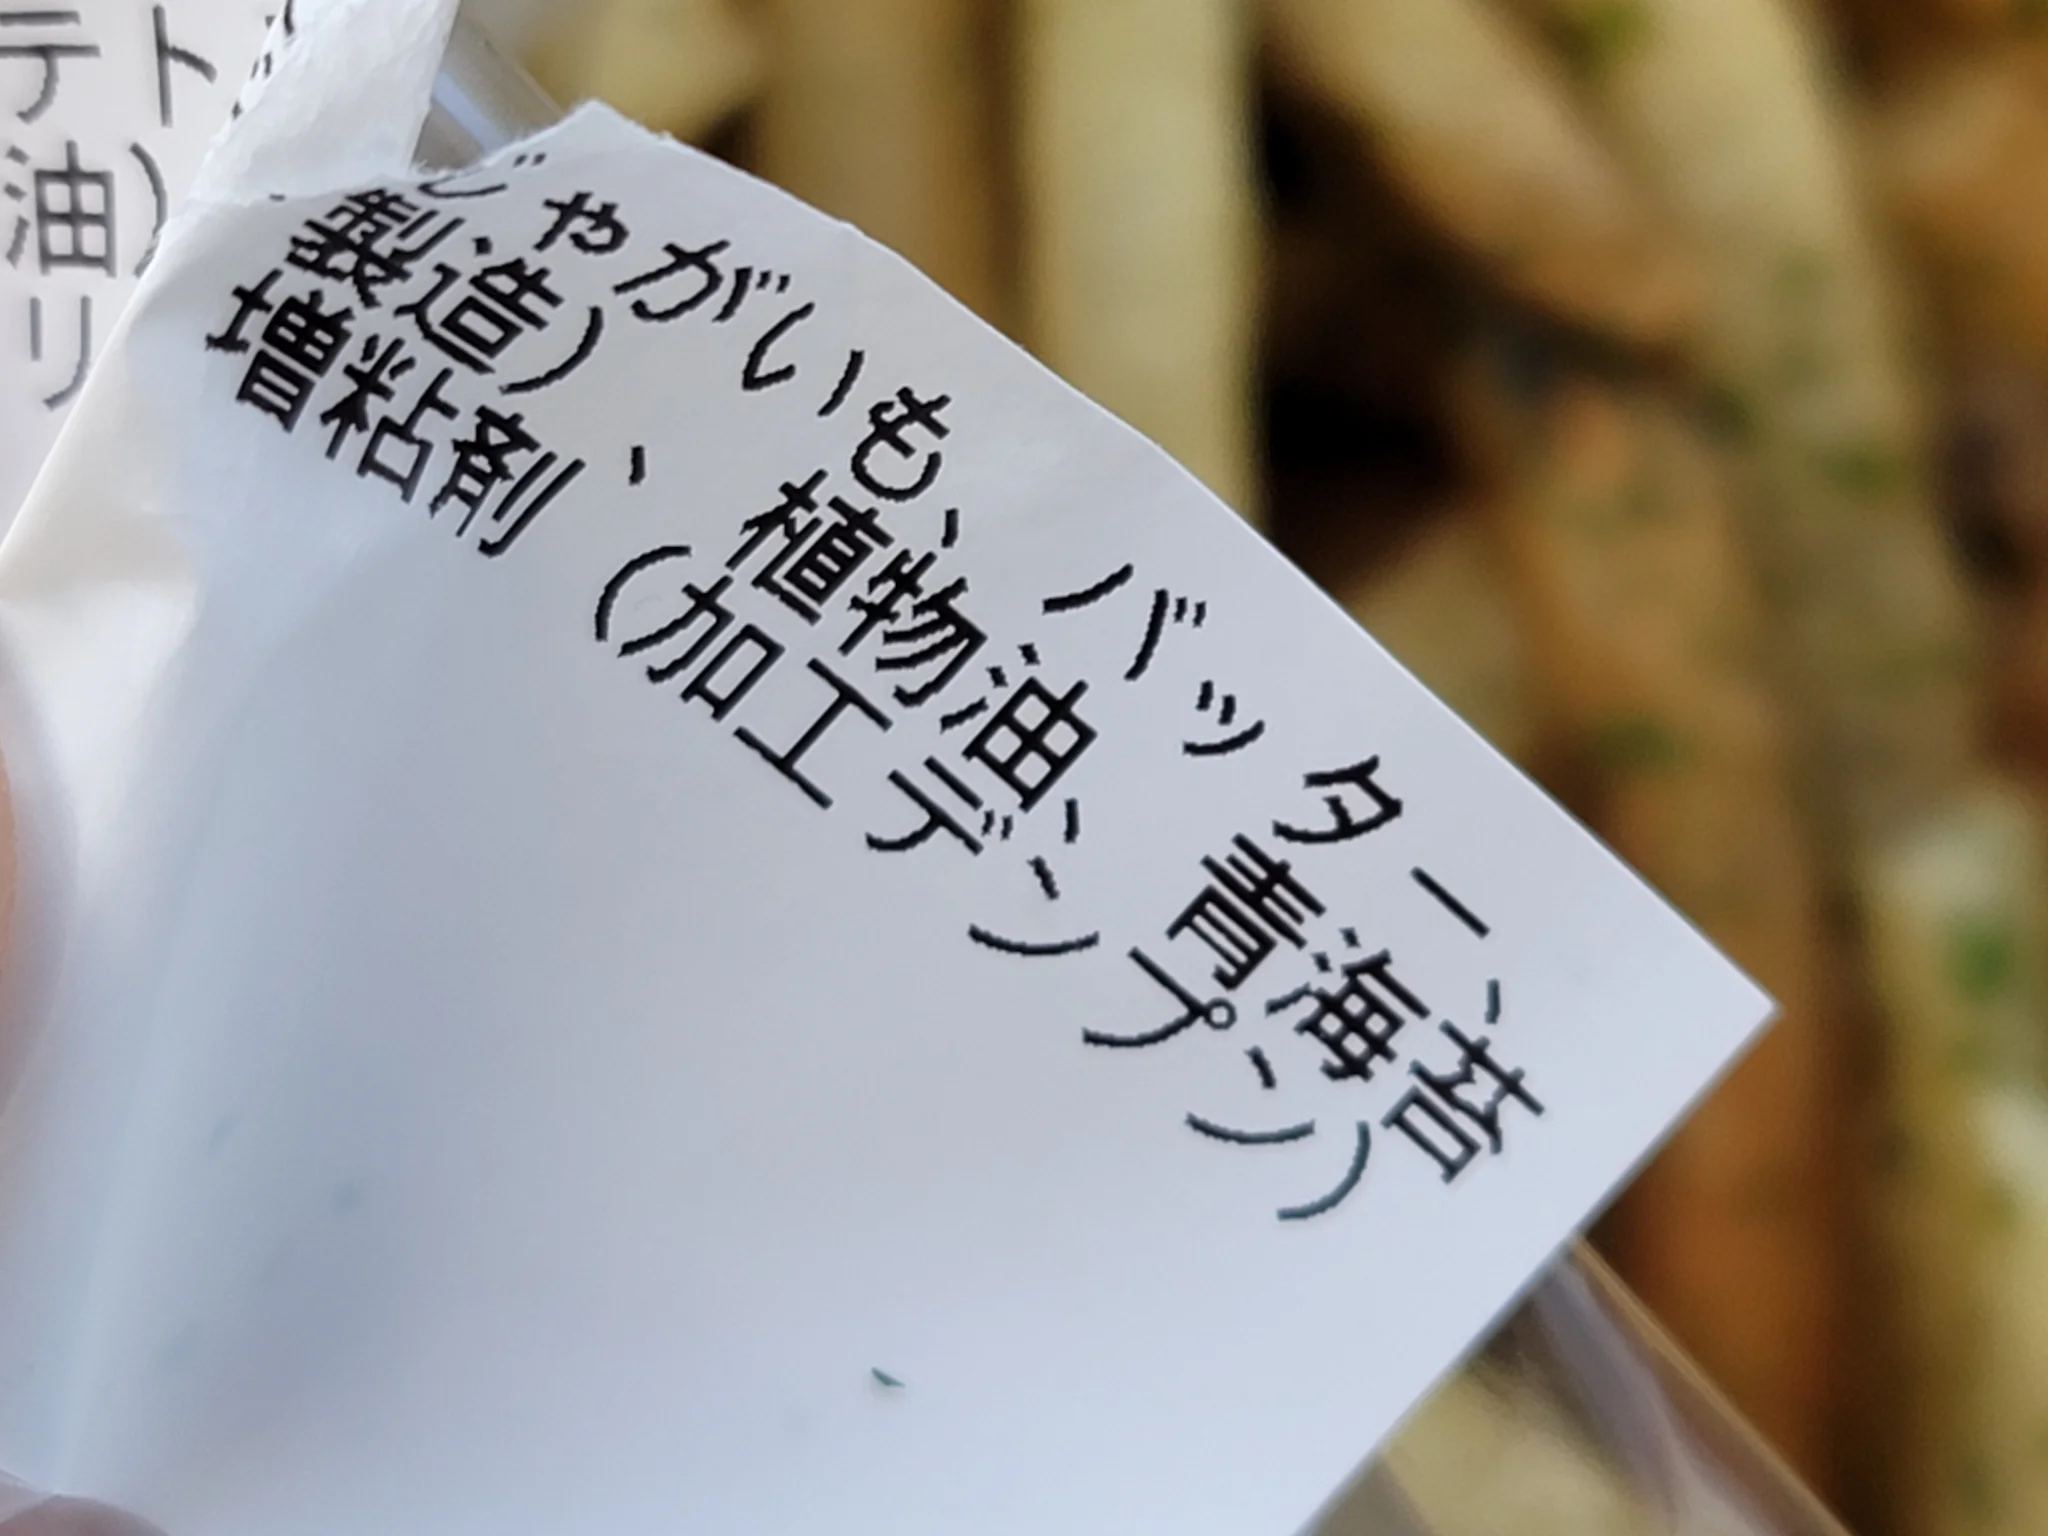 テト
油)
リ
じゃがいも、バッター、
製造)、植物油、青海苔
増粘剤(加工デンプン)